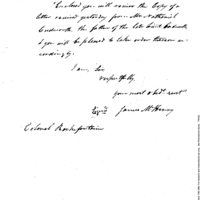 Enclosed you will receive the Copy of a
letter received yesterday from Mr Nathaniel
the father of the late Lieut
& you will be pleased to take order thereon ac-
cordingly.
I am, Sir
respectfully
your most & obdt. servt
Signd James McHenry
Colonel Rochefontaine